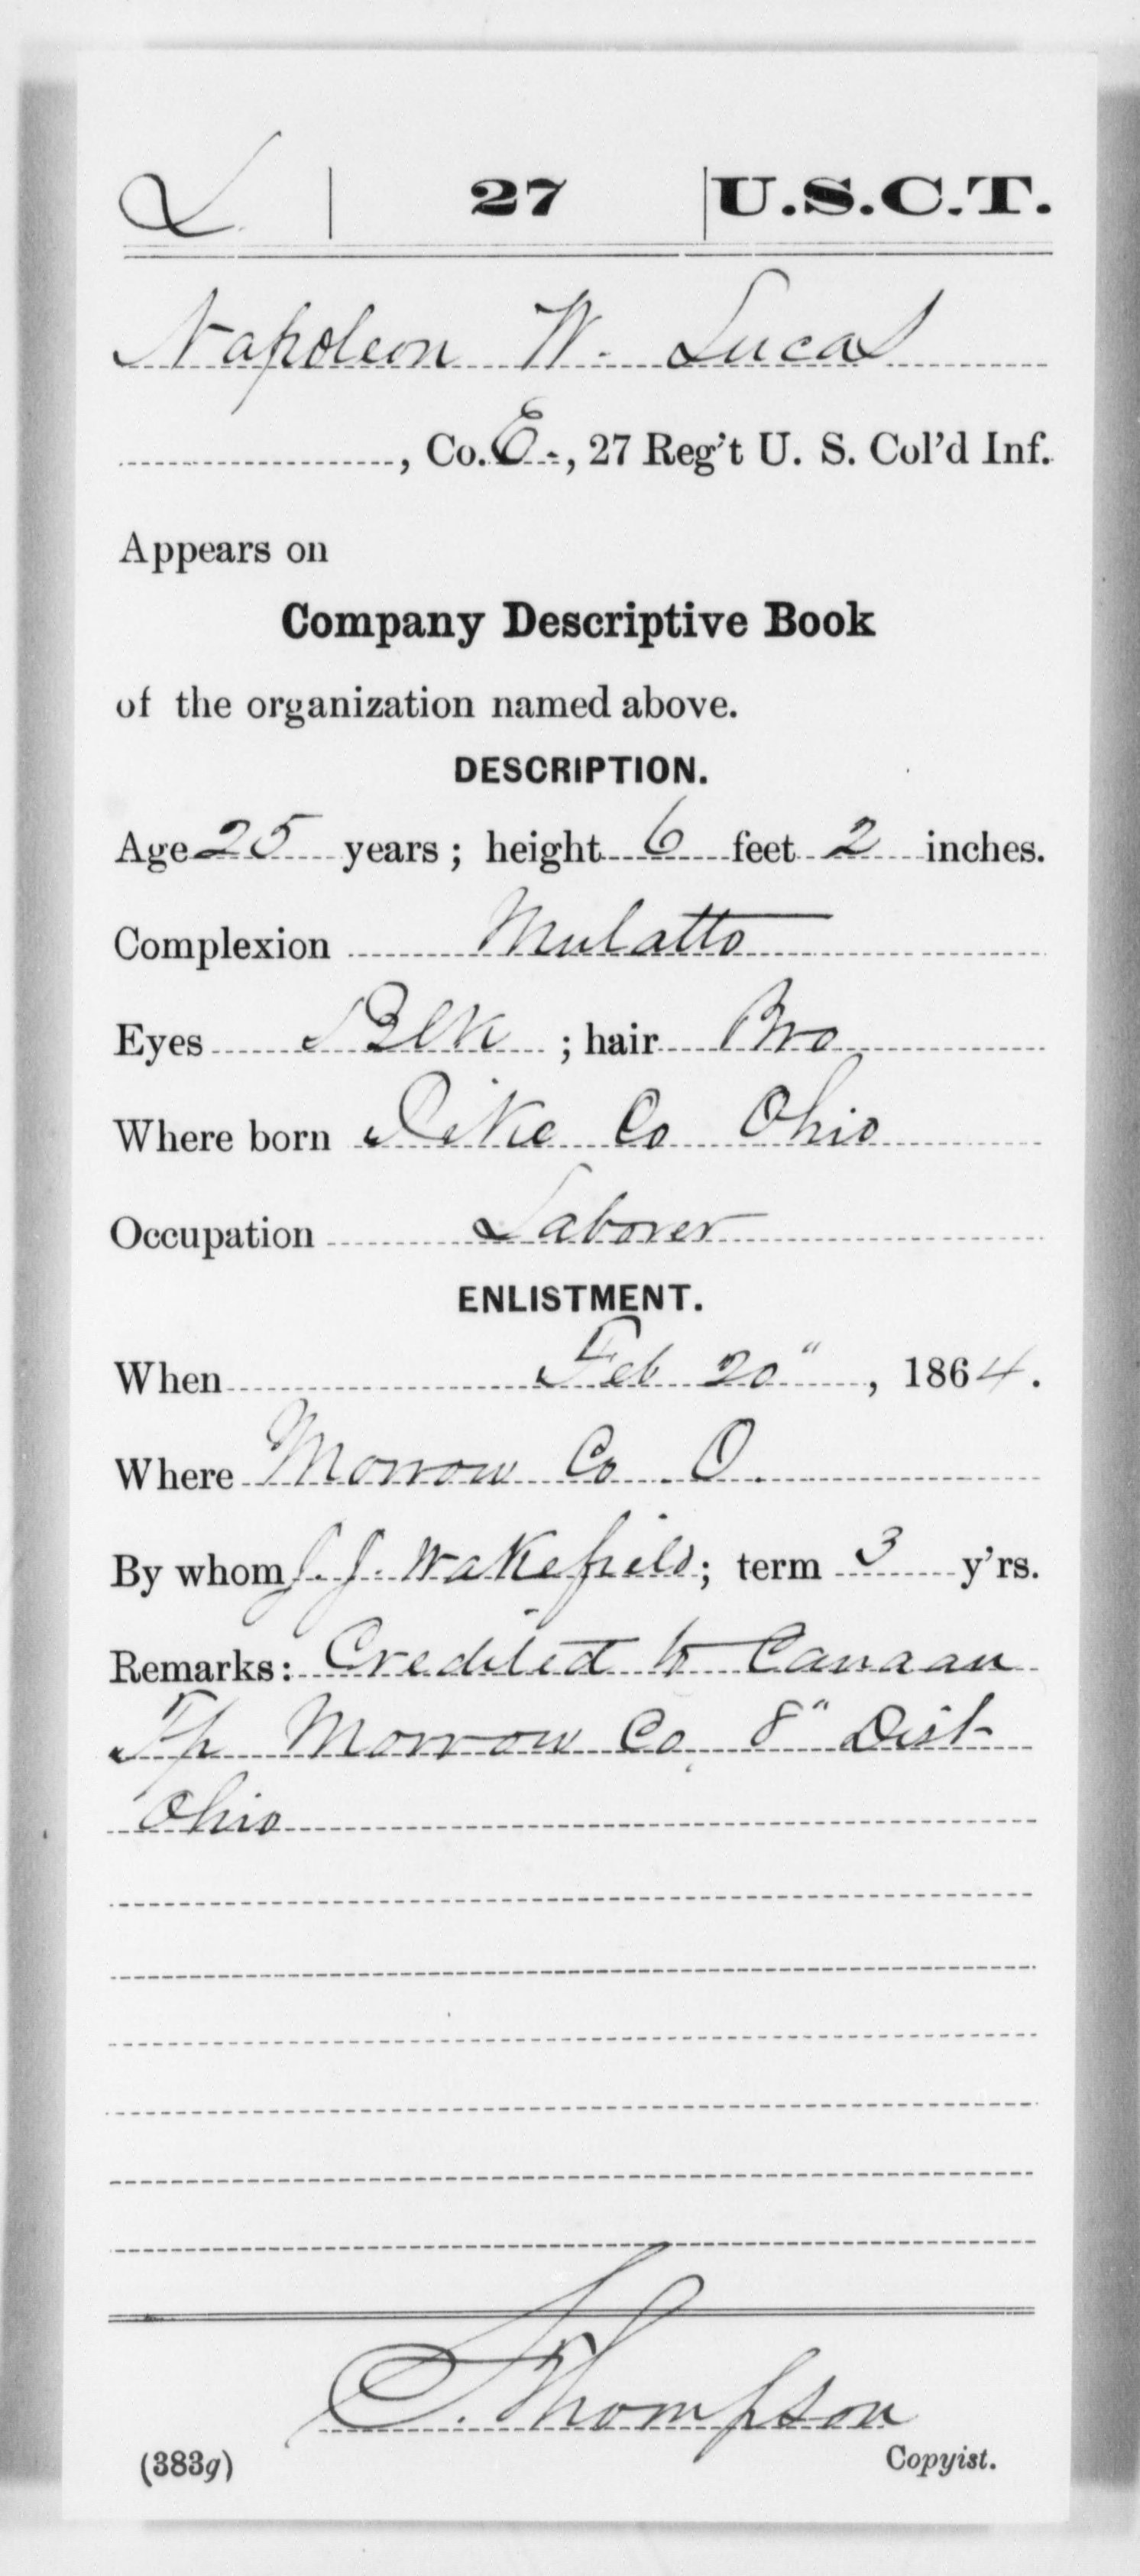 L. | 27 | U.S.C.T.
Napoleon W. Lucas
, Co. E., 27 Reg't U. S. Col'd Inf.
Appears on
Company Descriptive Book
of the organization named above.
DESCRIPTION.
Age 25 years; height 6 feet 2 inches.
Complexion Mulatto
Eyes Blk; hair Bro
Where born Pike Co Ohio
Occupation Laborer
ENLISTMENT.
When Feb 20", 1864.
Where Morrow Co O.
By whom J. J. Wakefield; term 3 y'rs.
Remarks: Credited to Canaan
Tp Morrow Co, 8" Dist
Ohio
C. Thompson
(383g) Copyist.